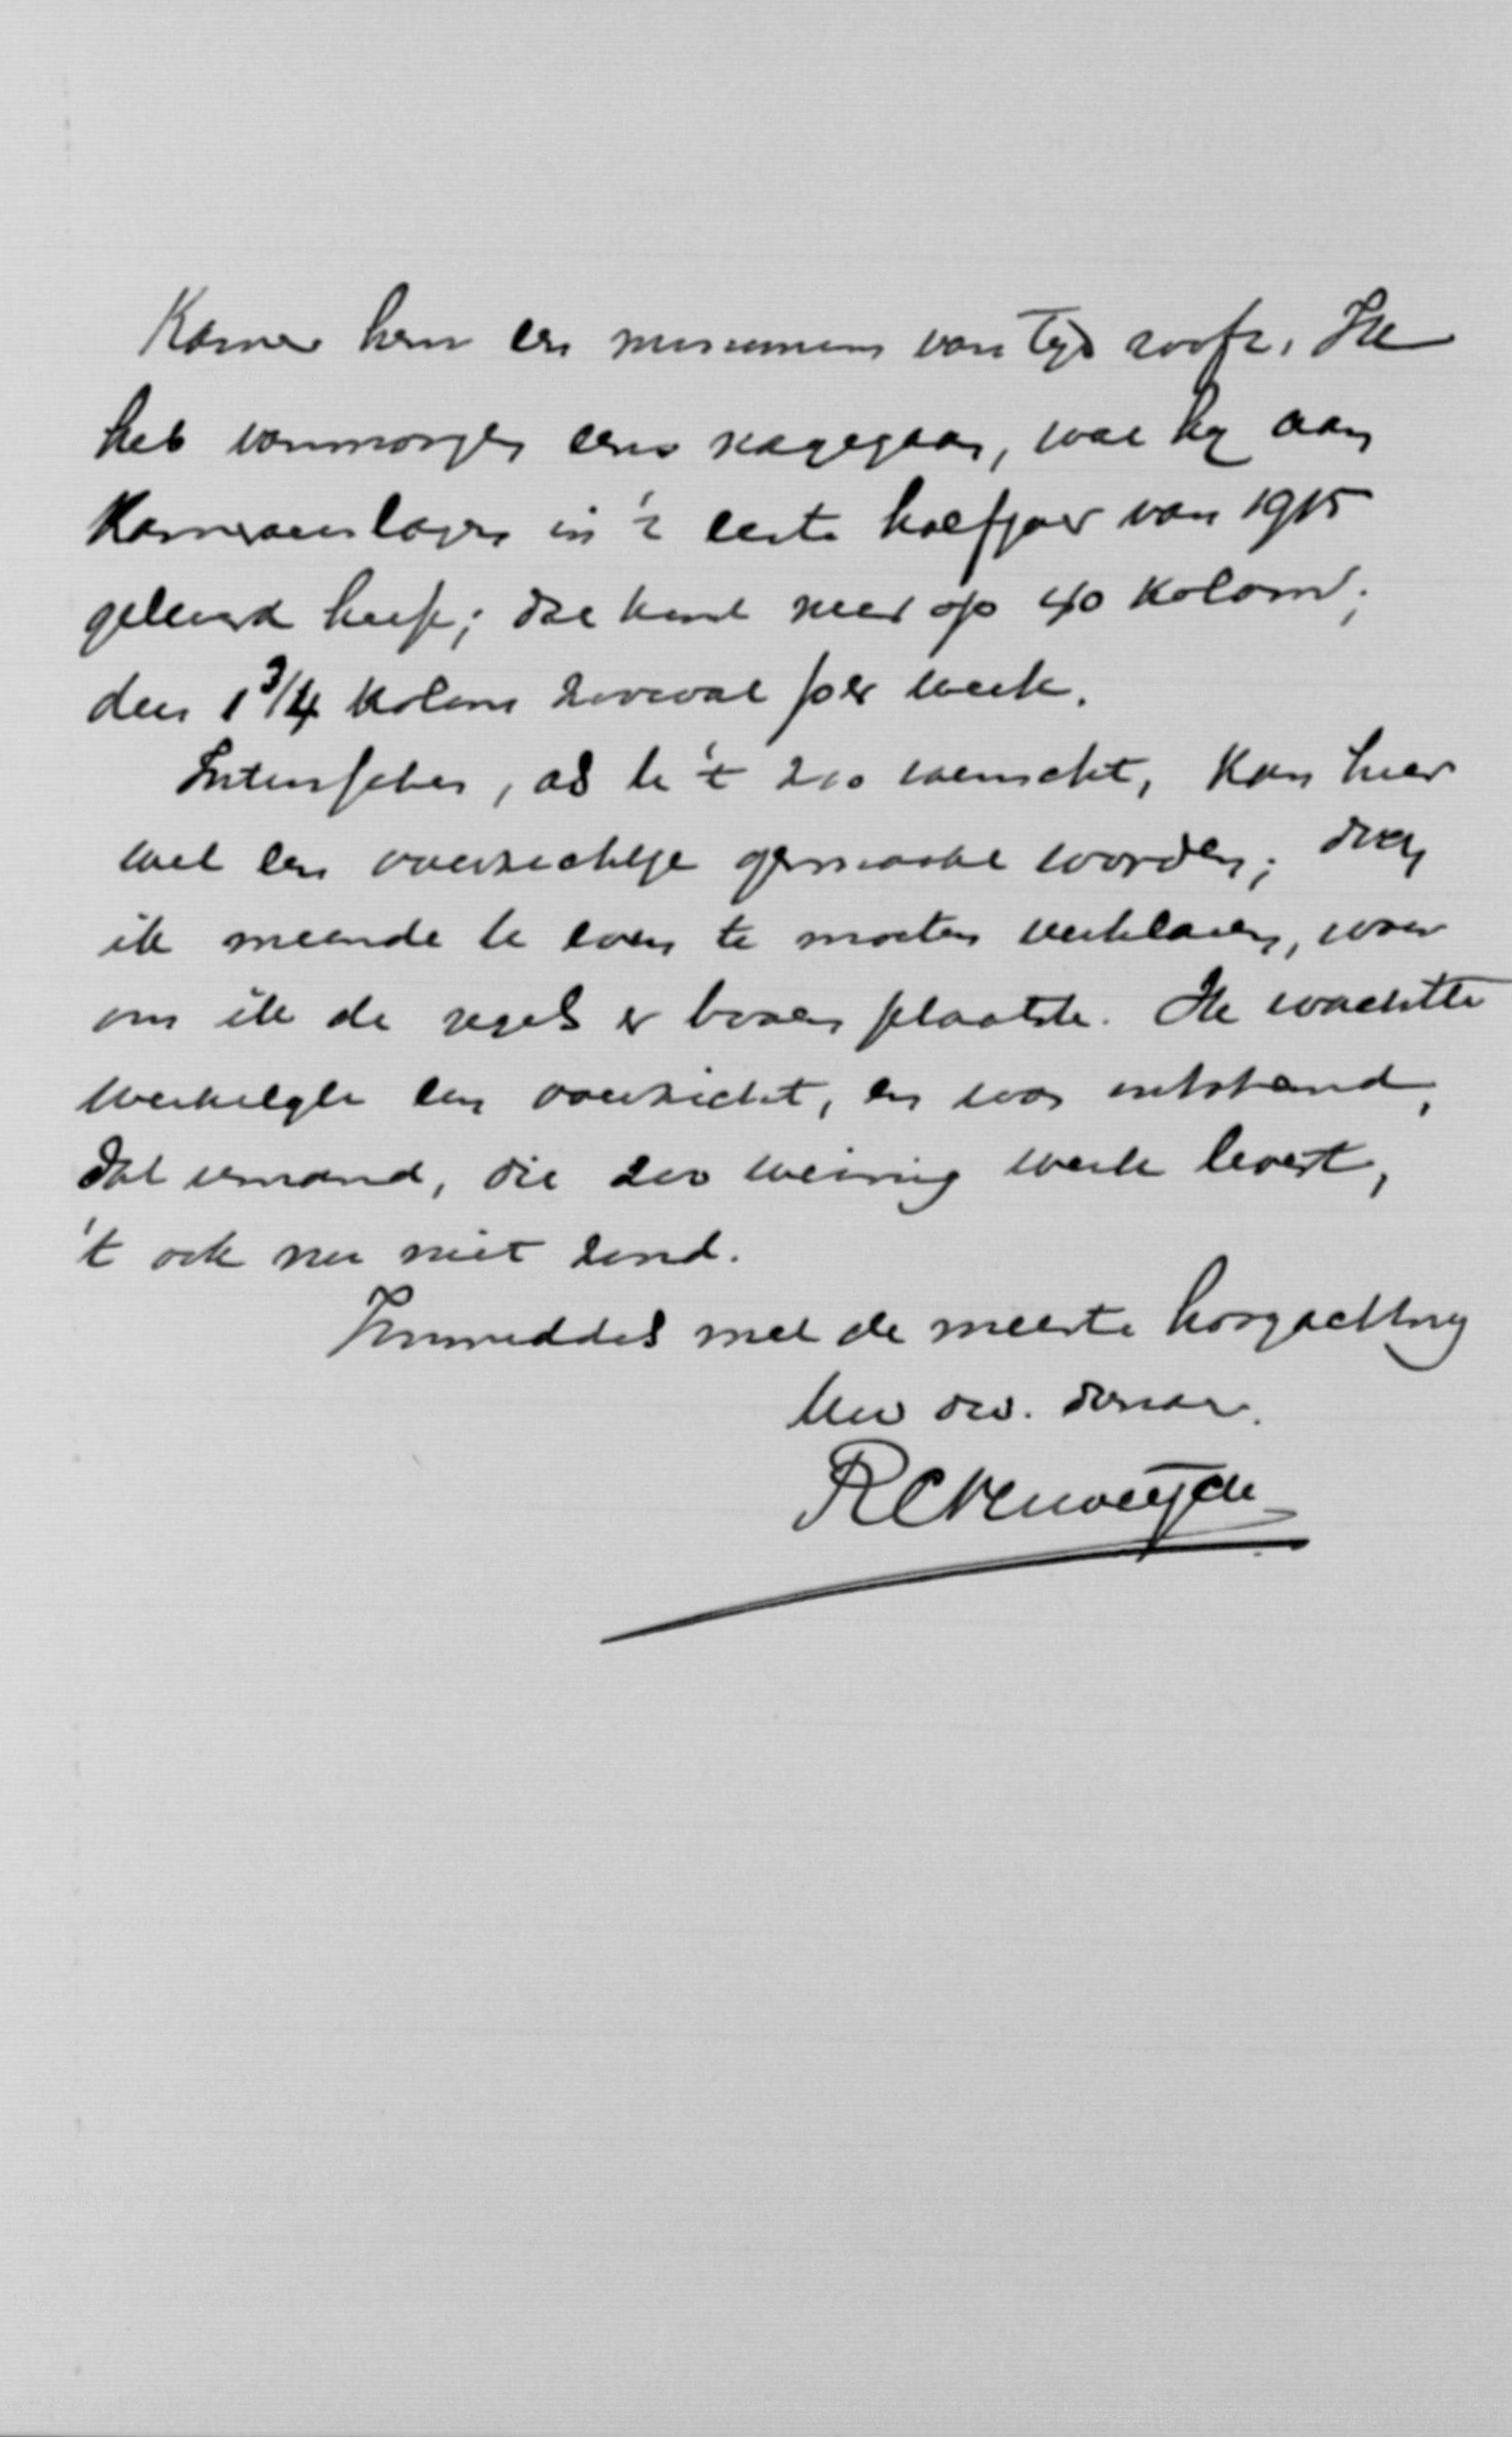 Kamer hem een minimum van tijd rooft. Ik
heb vanmorgen eens nagegaan, wat hij aan
Kamerverslagen in 't eerste halfjaar van 1915
geleverd heeft; dat komt neer op 40 kolom;
den 1 3/4 kolom zoowat per week.
Intusschen, als U 't zoo wenscht, kan hier
wel een overzichtje gemaakt worden; doch
ik meende U even te moeten verklaren, waar
om ik de regels er boven plaatste. Ik wachtte
werkelijk een overzicht, en was ontstemd,
dat iemand, die zoo weinig werk levert,
't ook nu niet zond.
Inmiddels met de meeste hoogachting
Uw dw. dienaar.
RCVerweyde